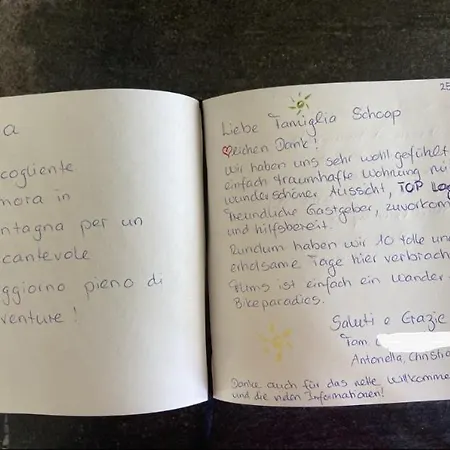 a
cogliente
mora in
ntagna per un
cantevole
ggiorno pieno di
venture!
25
Liebe Famiglia Schoop
eichen Dank!
Wir haben uns sehr wohl gefühlt
einfach traumhafte Wohnung mi
wunderschöner Aussicht, TOP Lag
freundliche Gastgeber, zuvorkom
und hilfsbereit.
Rundum haben wir 10 tolle und
erholsame Tage hier verbrach
Flims ist einfach ein Wander
Bikeparadies.
Saluti e Grazie
Fam
Antonella, Christia
Danke auch für das nette Willkomme
und die vielen Informationen!